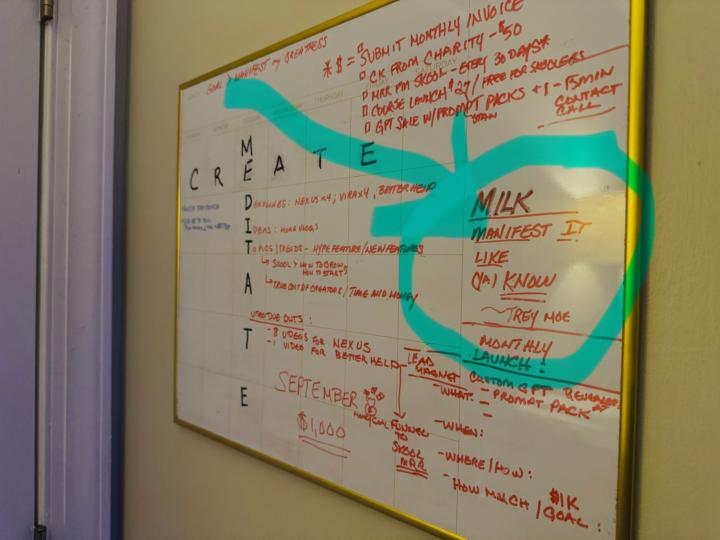 GOAL > MANIFEST my GREATNESS
* $ = SUBMIT MONTHLY INVOICE
CK FROM CHARITY - $50
MRR PM SKOOL - EVERY 30 DAYS*
COURSE LAUNCH $27 / FREE FOR SKOOLERS
GPT SALE W/ PROMPT PACKS + 1 - 15 MIN
CONTACT
CALL
THURSDAY
SATURDAY
CREATE
MEDITATE
DEADLINES: NEXUS x4, VIRAX4, BETTERHELD
IDEAS: MORE VLOGS
TOPICS/TRENDS - HYPE FEATURE/NEW FEATURES
SKOOL > HOW TO GROW
HOW TO START
TRUE COST OF CREATORS / TIME AND MONEY
VIDEO DUE OUTS:
- 8 VIDEOS FOR NEXUS
- 1 VIDEO FOR BETTERHELD
SEPTEMBER
$1,000
MILK
MANIFEST IT
LIKE
I KNOW
TREY MOE
MONTHLY
LAUNCH!
LEAD
MAGNET
CUSTOM GPT
- WHAT:
- PROMPT PACK
FUNNEL
TO
SKOOL
MRR
- WHEN:
- WHERE/HOW:
- HOW MUCH/GOAL:
$1K